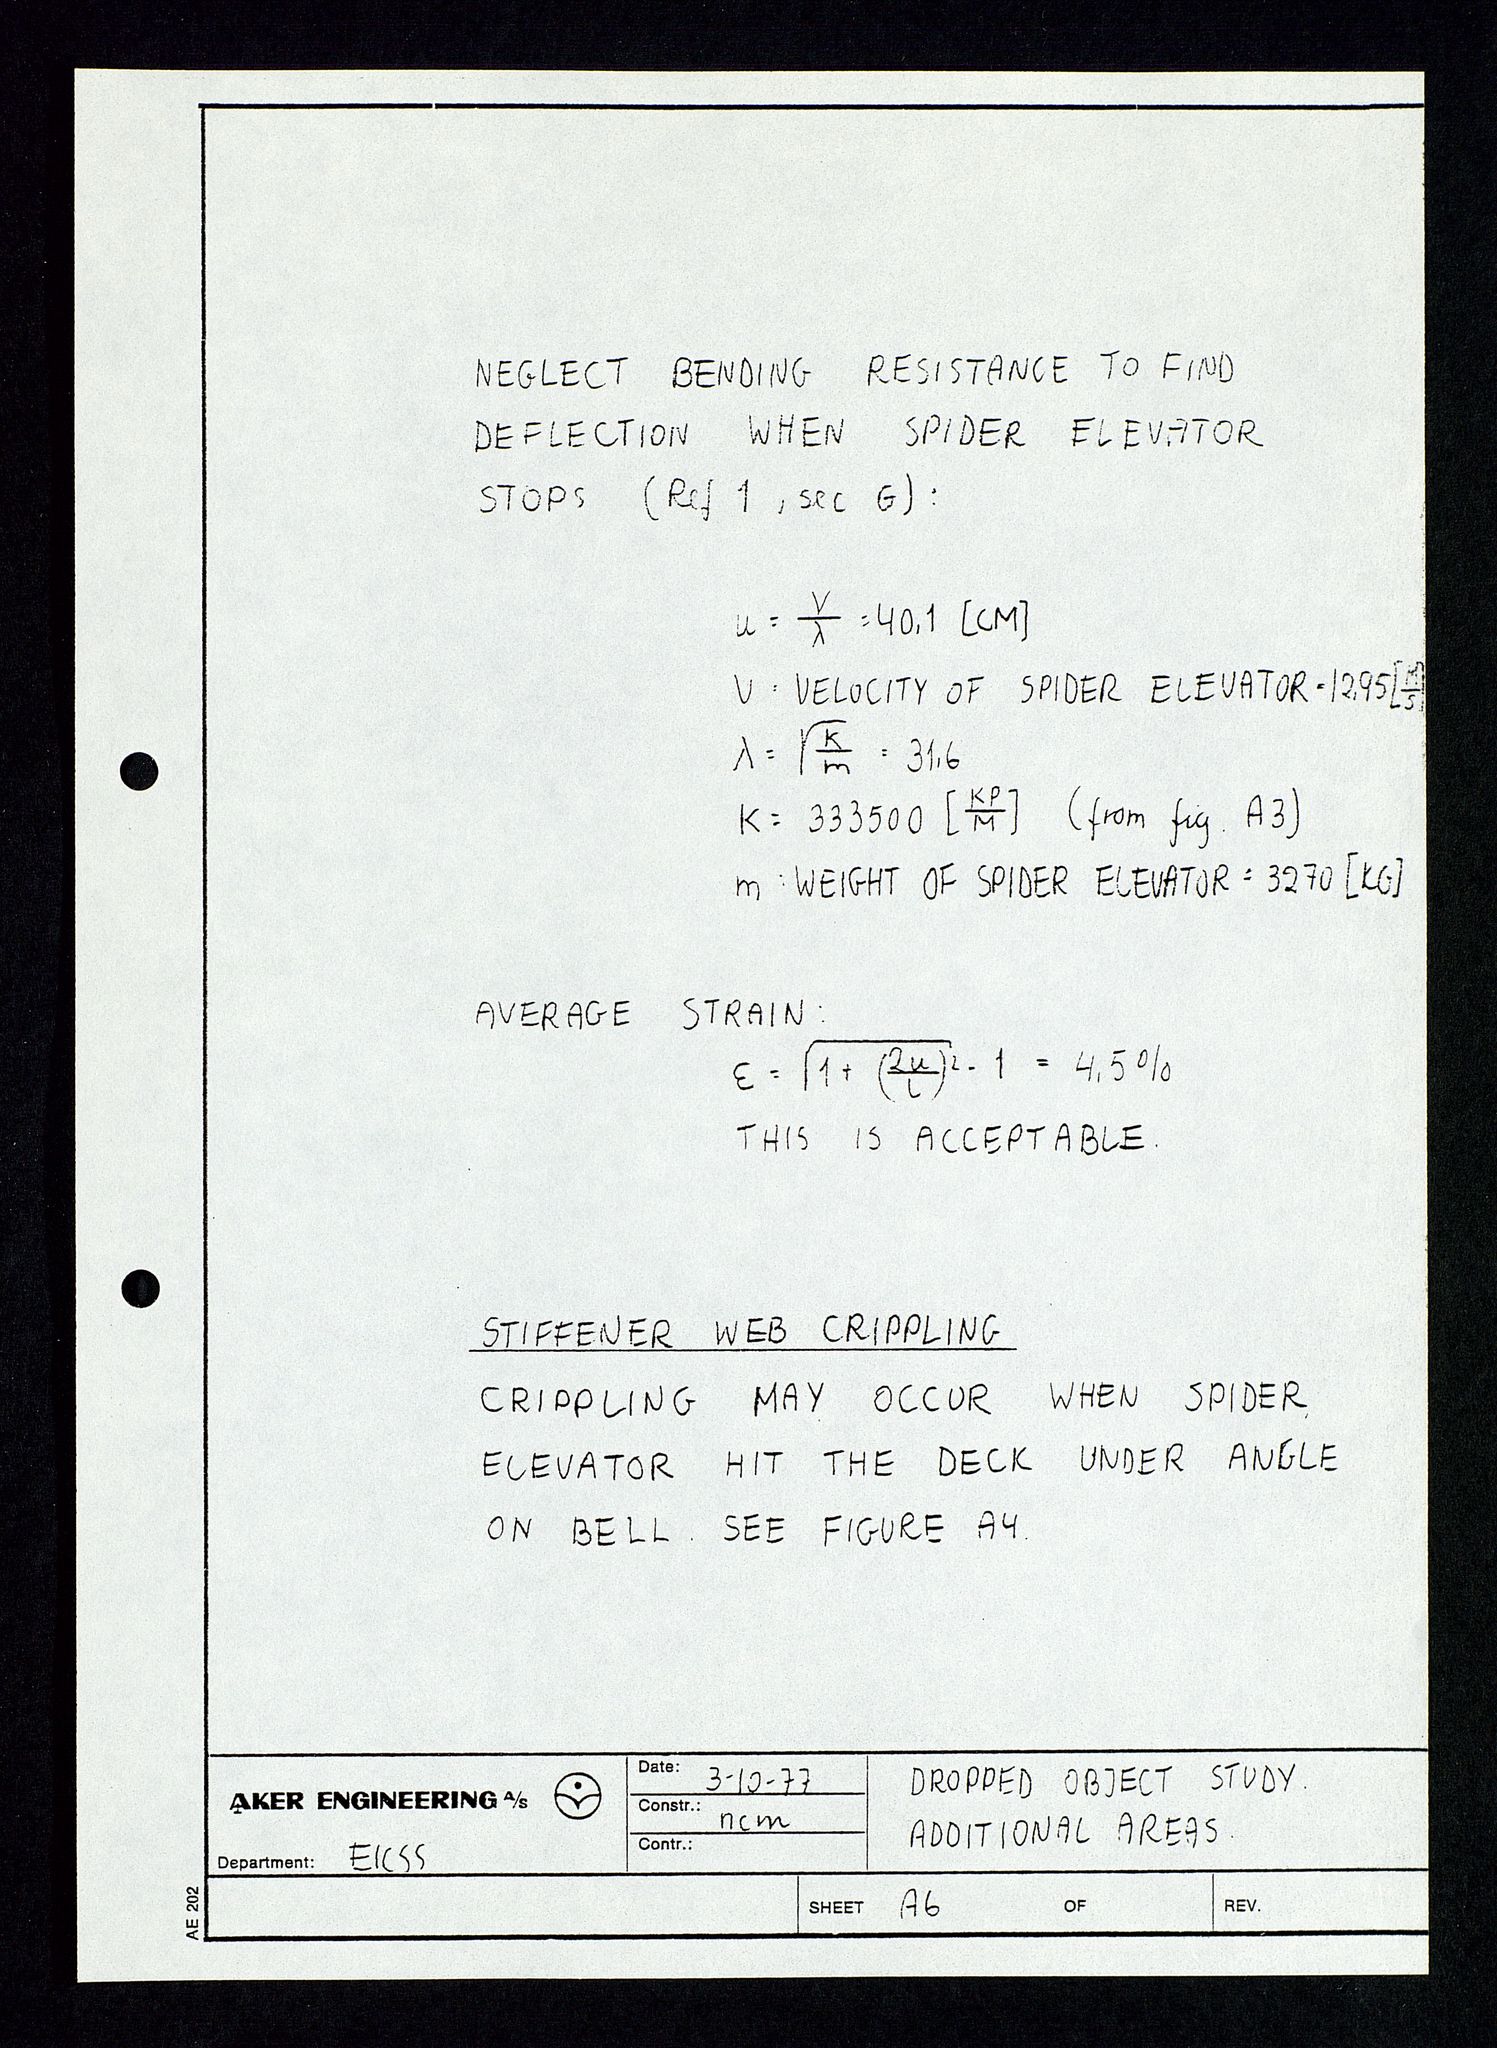 NEGLECT BENDING RESISTANCE TO FIND
DEFLECTION WHEN SPIDER ELEVATOR
STOPS (Ref 1, sec G):
u = V/λ = 40,1 [CM]
V = VELOCITY OF SPIDER ELEVATOR = 12,95 [M/S]
λ = √(K/m) = 31,6
K = 333500 [KP/M] (from fig. A3)
m : WEIGHT OF SPIDER ELEVATOR = 3270 [KG]
AVERAGE STRAIN:
ε = √(1 + (2u/L)²) - 1 = 4,5 %
THIS IS ACCEPTABLE.
STIFFENER WEB CRIPPLING
CRIPPLING MAY OCCUR WHEN SPIDER
ELEVATOR HIT THE DECK UNDER ANGLE
ON BELL. SEE FIGURE A4.
AKER ENGINEERING A/S
Department:
Date: 3-10-77
Constr.: ncm
Contr.:
DROPPED OBJECT STUDY.
ADDITIONAL AREAS.
AE 202
SHEET A6 OF
REV.